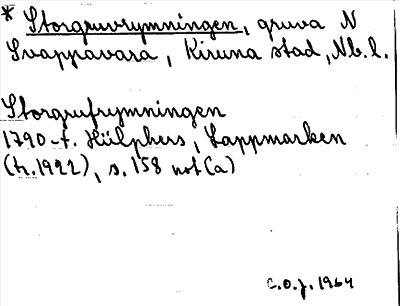 * Storgruvrymningen, gruva N
Svappavara, Kiruna stad, Nb. l.
Storgrufrymningen
1790-t. Hülphers, Lappmarken
(tr. 1922), s. 158 not (a)
C.O.J. 1964